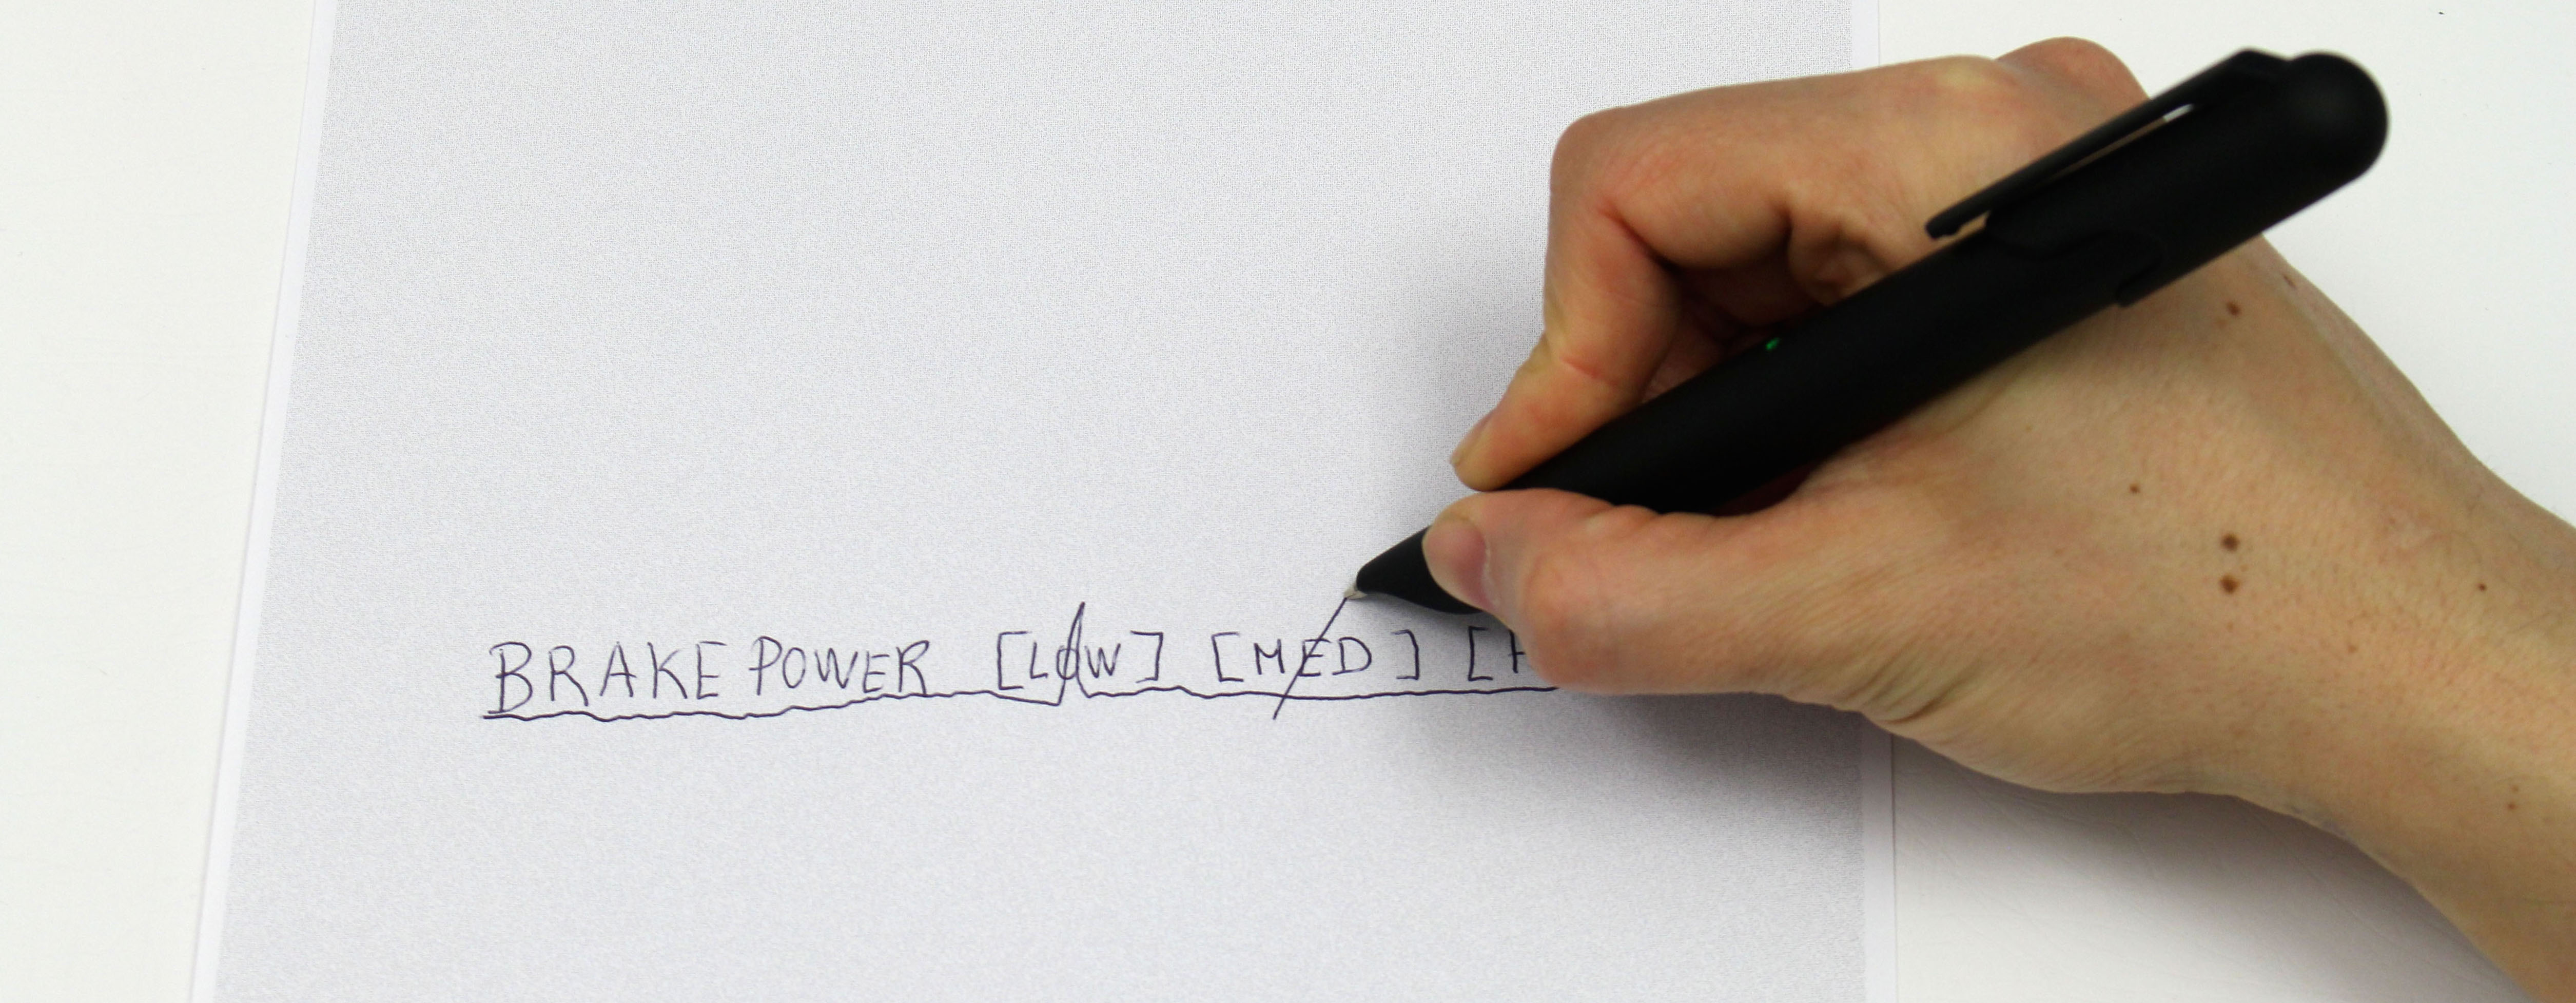 BRAKE POWER [LOW] [MED] [